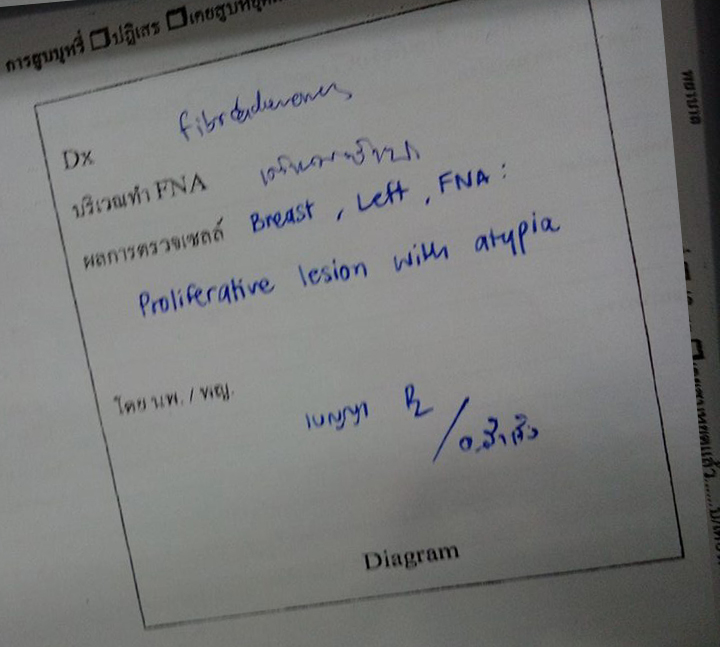 การสูบบุหรี่ ☐ปฏิเสธ ☐เคยสูบ
Dx
บริเวณทำ FNA
ผลการตรวจเซลล์ Breast, Left, FNA:
Proliferative lesion with atypia
โดย นพ. / พญ.
เบญญา R2
Diagram
พยาบาล